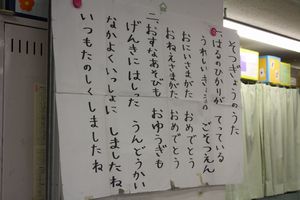 そつぎょうのうた
一、はるのひかりが てっている
うれしいきょうの ごそつえん
おにいさまがた おめでとう
おねえさまがた おめでとう
二、おすなあそびも おゆうぎも
げんきにはしった うんどうかい
なかよくいっしょに しましたね
いつもたのしく しましたね